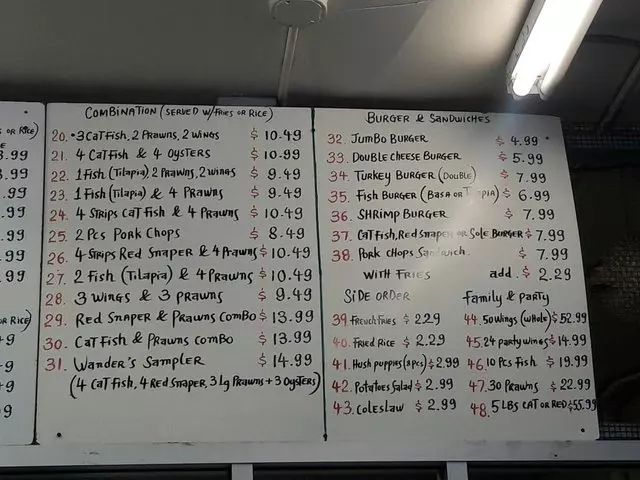 OR RICE)
3.99
.99
.99
.99
.99
.99
OR RICE)
COMBINATION (SERVED W/FRIES OR RICE)
20. 3 CATFISH, 2 PRAWNS, 2 WINGS $10.49
21. 4 CATFISH & 4 OYSTERS $10.99
22. 1 FISH (TILAPIA) 2 PRAWNS, 2 WINGS $9.49
23. 1 FISH (TILAPIA) & 4 PRAWNS $9.49
24. 4 STRIPS CATFISH & 4 PRAWNS $10.49
25. 2 PCS PORK CHOPS $8.49
26. 4-STRIPS RED SNAPER & 4 PRAWNS $10.49
27. 2 FISH (TILAPIA) & 4 PRAWNS $10.49
28. 3 WINGS & 3 PRAWNS $9.49
29. RED SNAPER & PRAWNS COMBO $13.99
30. CATFISH & PRAWNS COMBO $13.99
31. WANDER'S SAMPLER $14.99
(4 CATFISH, 4 RED SNAPER, 3 Lg PRAWNS + 3 OYSTERS)
BURGER & SANDWICHES
32. JUMBO BURGER $4.99
33. DOUBLE CHEESE BURGER $5.99
34. TURKEY BURGER (DOUBLE) $7.99
35. FISH BURGER (BASA OR T PIA) $6.99
36. SHRIMP BURGER $7.99
37. CATFISH, RED SNAPER OR SOLE BURGER $7.99
38. PORK CHOPS SANDWICH. $7.99
WITH FRIES add. $2.29
SIDE ORDER
39. FRENCH FRIES $2.29
40. FRIED RICE $2.29
41. HUSH PUPPIES $2.99
42. POTATOES SALAD $2.99
43. COLESLAW $2.99
FAMILY & PARTY
44. 50 WINGS (WHOLE) $52.99
45. 24 PARTY WINGS $14.99
46. 10 PCS FISH $19.99
47. 30 PRAWNS $22.99
48. 5 LBS CAT OR RED $55.99